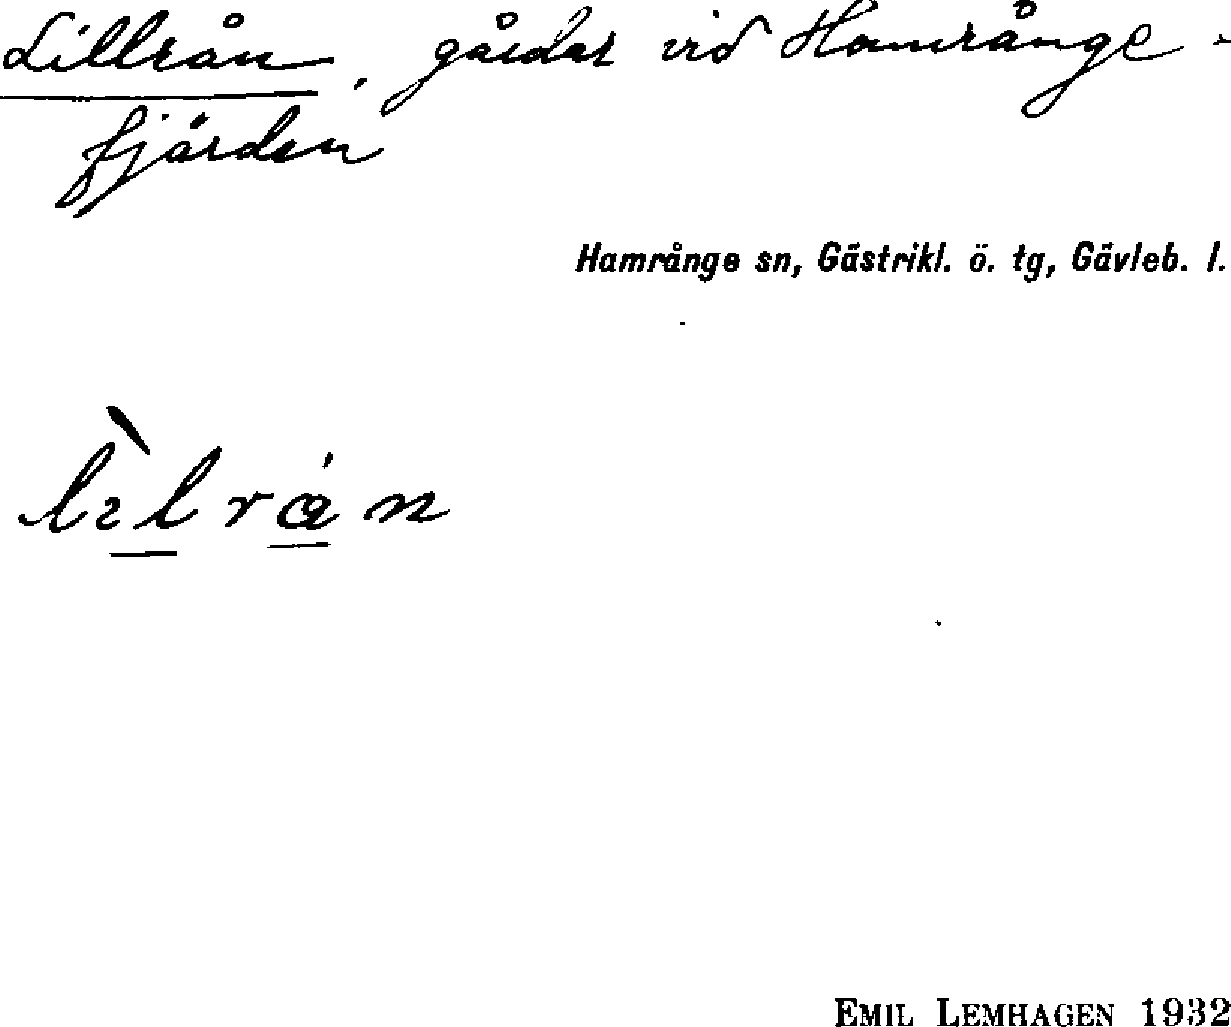 Lillrån, gårdar vid Hamrånge-
fjärden
Hamrånge sn, Gästrikl. ö. tg, Gävleb. l.
EMIL LEMHAGEN 1932